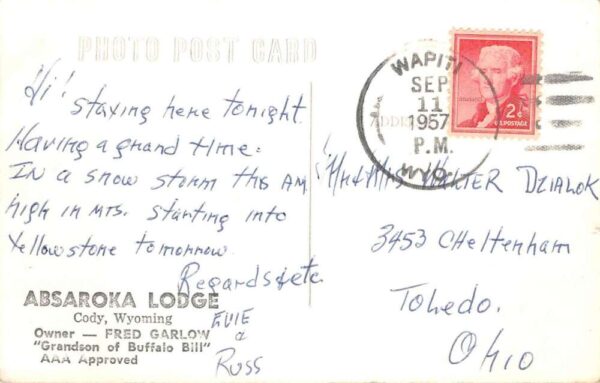 PHOTO POST CARD
Hi!
staxing here tonight.
Having a grand time.
IN a snow storm this AM
high in mts. starting into
Yellowstone tomorrow
Regards & etc.
EVIE
&
RUSS
ABSAROKA LODGE
Cody, Wyoming
Owner — FRED GARLOW
"Grandson of Buffalo Bill"
AAA Approved
WAPITI
SEP
11
1957
P.M.
WYO.
2¢
U.S. POSTAGE
Mr & Mrs WALTER DZIALOK
3453 CHeltenham
Toledo.
Ohio